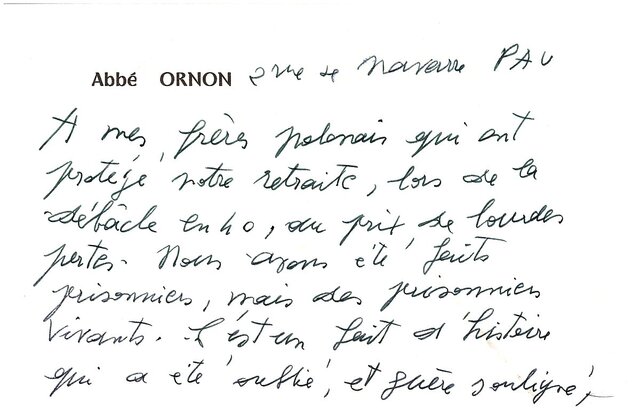 Abbé ORNON 2 rue de Navarre PAU
A mes frères polonais qui ont
protégé notre retraite, lors de la
débâcle en 40, au prix de lourdes
pertes. Nous avons été faits
prisonniers, mais des prisonniers
vivants. C'est un fait d'histoire
qui a été oublié, et guère souligné,